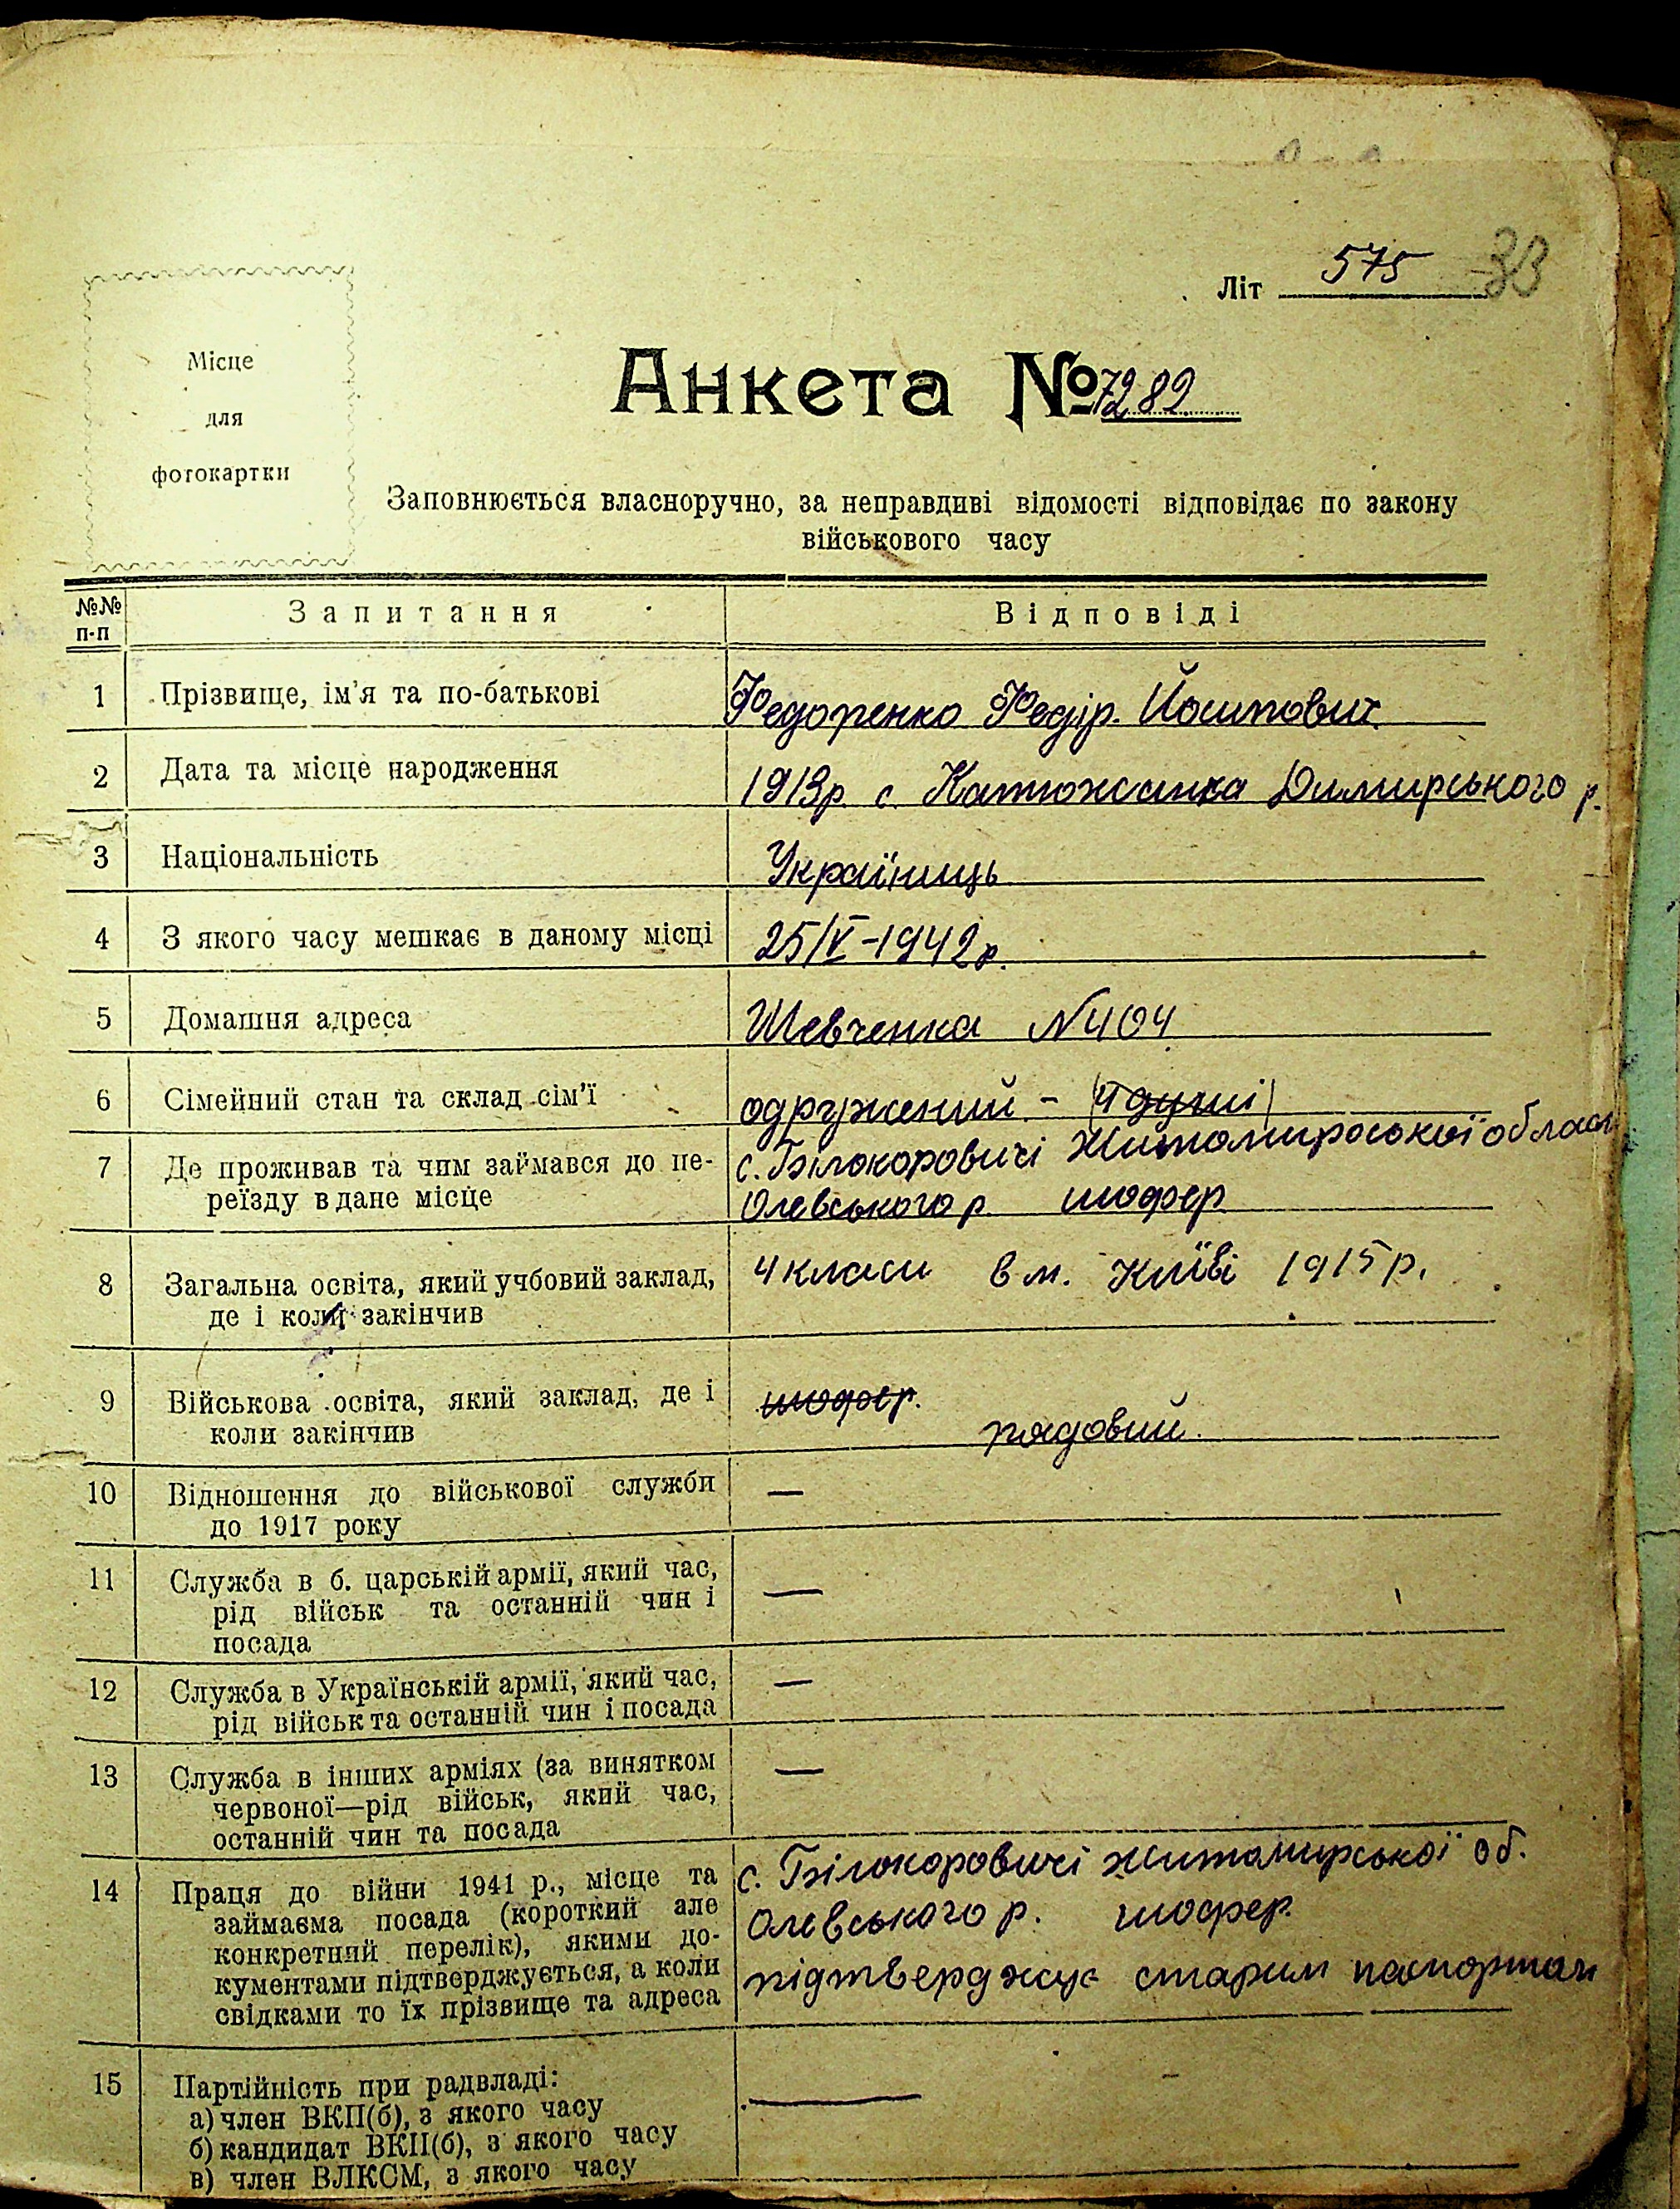 Літ 575 33
Місце
для
фотокартки
Анкета № 7282
Заповнюється власноручно, за неправдиві відомості відповідає по закону
військового часу
№№
п-п
Запитання
Відповіді
1 Прізвище, ім'я та по-батькові Федоренко Федір. Йосипович
2 Дата та місце народження 1913р. с. Катюжанка Димирського р.
3 Національність Україниць
4 З якого часу мешкає в даному місці 25/V-1942р.
5 Домашня адреса Шевченка N 404
6 Сімейний стан та склад сім'ї одружений - (4 душі)
7 Де проживав та чим займався до пе- с. Білокоровичі Житомироської област
реїзду в дане місце Олевського р шофер
8 Загальна освіта, який учбовий заклад, 4 класи в м. Київі 1915 р.
де і коли закінчив
9 Військова освіта, який заклад, де і шофер.
коли закінчив рядовий.
10 Відношення до військової служби —
до 1917 року
11 Служба в б. царській армії, який час, —
рід військ та останній чин і
посада
12 Служба в Українській армії, який час, —
рід військ та останній чин і посада
13 Служба в інших арміях (за винятком —
червоної—рід військ, який час,
останній чин та посада
14 Праця до війни 1941 р., місце та с. Білокоровичі Житомирської об.
займаєма посада (короткий але Олевського р. шофер.
конкретний перелік), якими до-
кументами підтверджується, а коли підтверджує старим паспортом
свідками то їх прізвище та адреса
15 Партійність при радвладі: —
а) член ВКП(б), з якого часу
б) кандидат ВКП(б), з якого часу
в) член ВЛКСМ, з якого часу